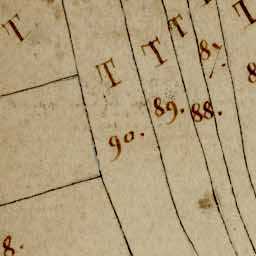 T
T
T
T
T
8
90.
89.
88.
8.